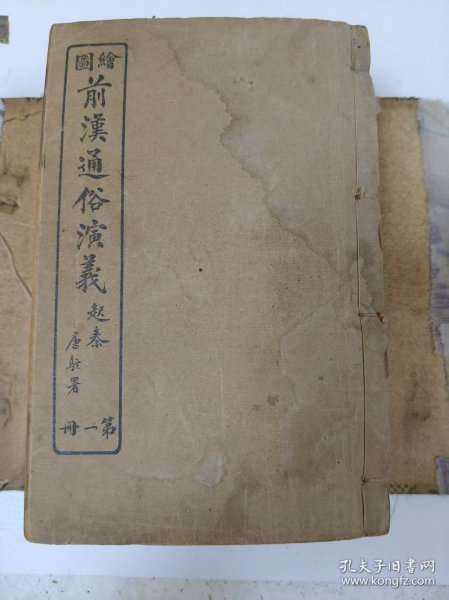 繪圖
前漢通俗演義
起秦
唐駝署
第一冊
孔夫子旧书网
www.kongfz.com